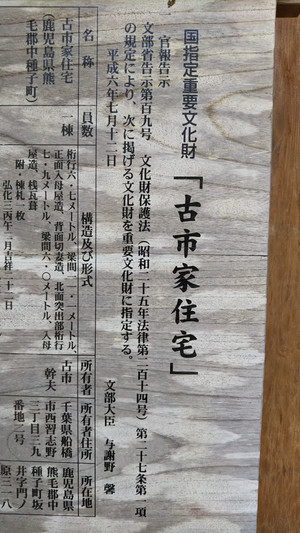 国指定重要文化財
「古市家住宅」
一 官報告示
文部省告示第百九号 文化財保護法(昭和二十五年法律第二百十四号)第二十七条第一項
の規定により、次に掲げる文化財を重要文化財に指定する。
平成六年七月十二日
文部大臣 与謝野 馨
名称
員数
構造及び形式
所有者
所有者住所
所在地
古市家住宅
(鹿児島県熊
毛郡中種子町)
一棟
桁行六・七メートル、梁間
一・一メートル、
正面入母屋造、背面切妻造、北面突出部桁行
七・九メートル、梁間六・〇メートル、入母
屋造、桟瓦葺
附・棟札 枚
弘化三丙午二月吉祥二十一日
古市
幹夫
千葉県船橋
市西習志野
三丁目三九
番地二号
鹿児島県
熊毛郡中
種子町坂
井字門ノ
原三一八